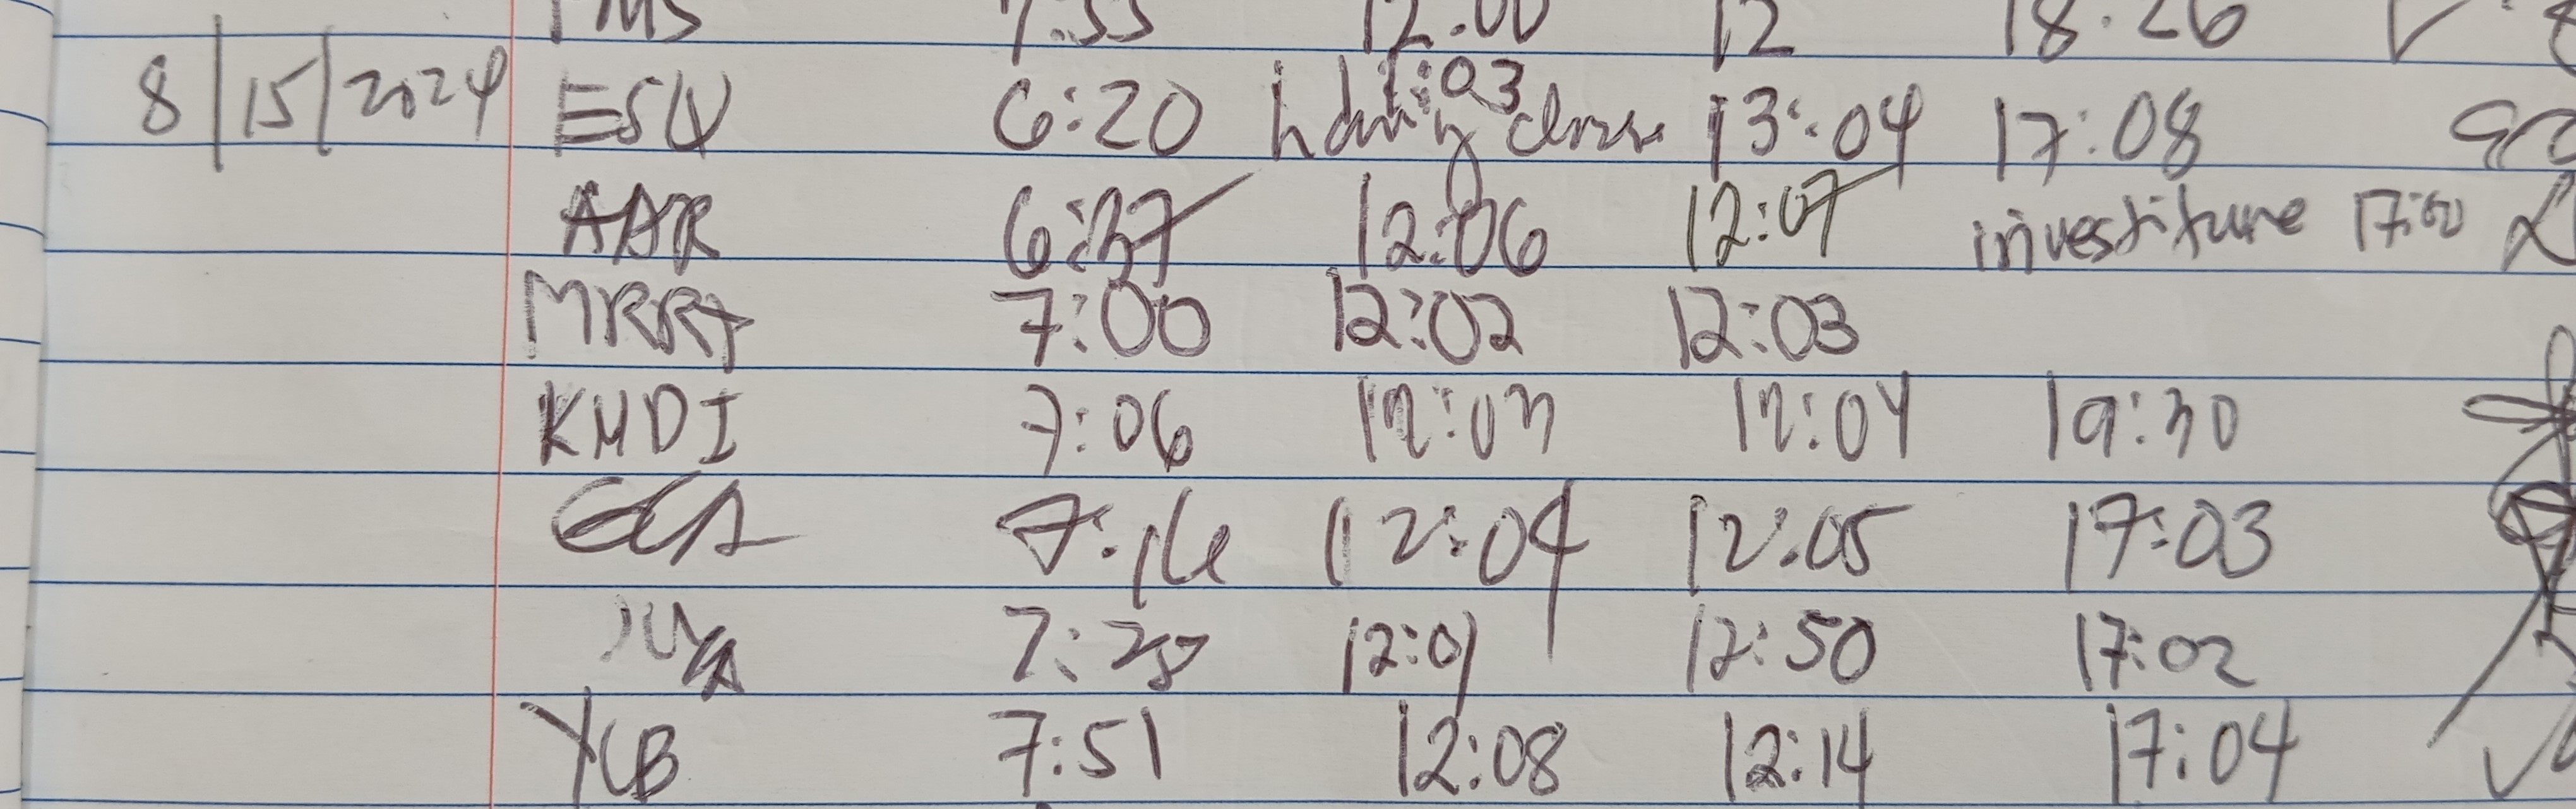 7:55 12:00 12 18:26
8/15/2024 ESU 6:20 13:03 during class 13:04 17:08
AAR 6:37 12:06 12:07 investiture 17:00
MRRT 7:00 12:02 12:03
KMDI 7:06 12:03 12:04 19:30
7:16 12:04 12:05 17:03
7:28 12:01 12:50 17:02
YCB 7:51 12:08 12:14 17:04